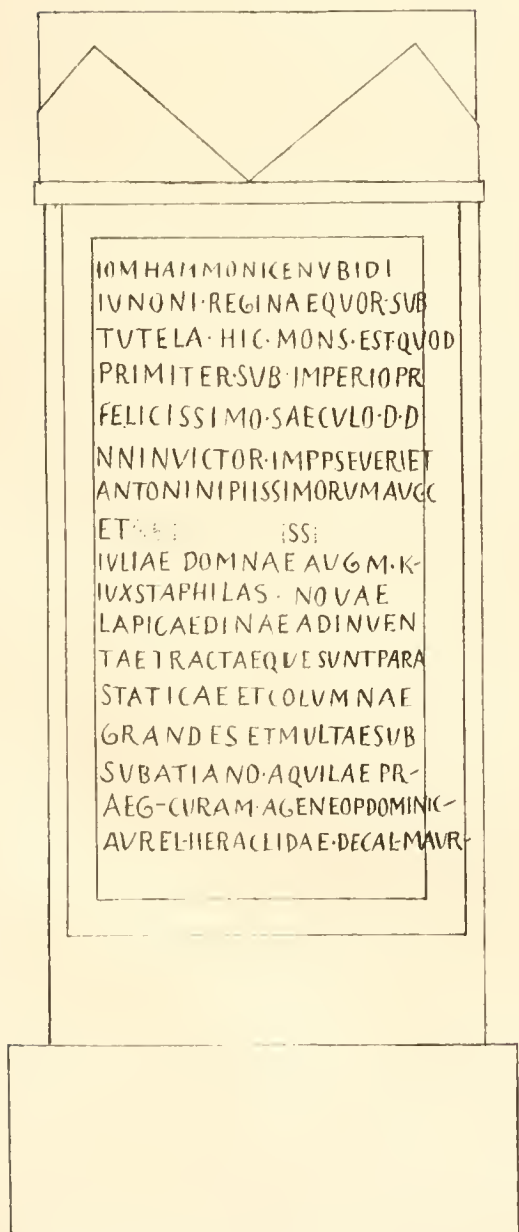 IOMHAMMONICENVBIDI
IVNONI·REGINAEQVOR·SUB
TVTELA·HIC·MONS·ESTQVOD
PRIMITER·SVB·IMPERIOPR
FELICISSIMO·SAECVLO·D·D
NNINVICTOR·IMPPSEVERIET
ANTONINIPIISSIMORVMAVGG
ET ISSI
IVLIAE DOMNAE AVG M·K-
IVXSTAPHILAS·NOVAE
LAPICAEDINAEADINVEN
TAETRACTAEQUESUNTPARA
STATICAE ETCOLVMNAE
GRANDES ETMULTAESUB
SUBATIANO·AQVILAE PR-
AEG-CURAM·AGENEOPDOMINIC-
AVREL·HERACLIDAE·DECAL·MAVR-